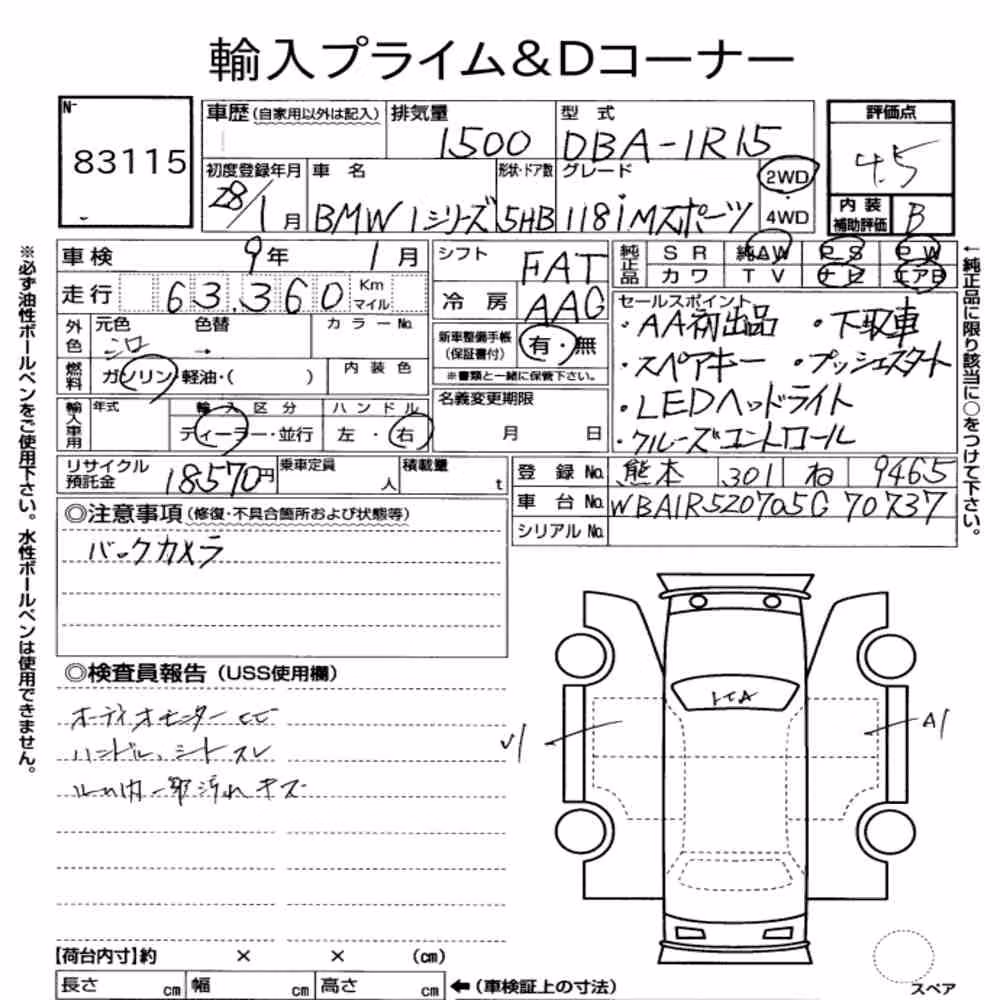 輸入プライム&Dコーナー
N-
83115
車歴 (自家用以外は記入)
排気量
1500
型式
DBA-1R15
評価点
4.5
初度登録年月
28/1月
車名
BMW 1シリーズ
形状・ドア数
5HB
グレード
118i Mスポーツ
2WD
4WD
内装
補助評価
B
車検 9年 1月
走行 63,360 Km
マイル
外色
元色
シロ
色替
→
カラーNo.
燃料
ガソリン・軽油・( )
内装色
輸入車用
年式
輸入区分
ディーラー・並行
ハンドル
左・右
シフト
FAT
冷房
AAC
新車整備手帳
(保証書付)
有・無
※書類と一緒に保管下さい。
名義変更期限
月 日
純正品
SR 純AW PS PW
カワ TV ナビ エアB
セールスポイント
・AA初出品 ・下取車
・スペアキー ・プッシュスタート
・LEDヘッドライト
・クルーズコントロール
リサイクル
預託金
18570円
乗車定員
人
積載量
t
登録No. 熊本 301 ね 9465
車台No. WBA1R520705G70737
シリアルNo.
◎注意事項 (修復・不具合箇所および状態等)
バックカメラ
◎検査員報告 (USS使用欄)
ハンドル、シートスレ
ルーム内一部汚れキズ
A1
【荷台内寸】約 × × (cm)
長さ cm 幅 cm 高さ cm
←(車検証上の寸法)
スペア
※必ず油性ボールペンをご使用下さい。水性ボールペンは使用できません。
←純正品に限り該当に○をつけて下さい。